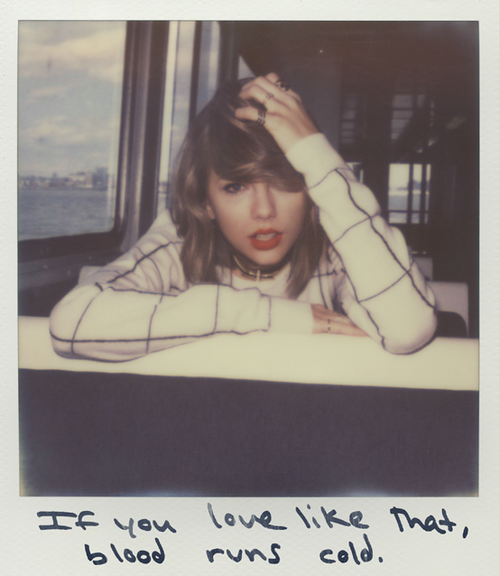 If you love like that,
blood runs cold.